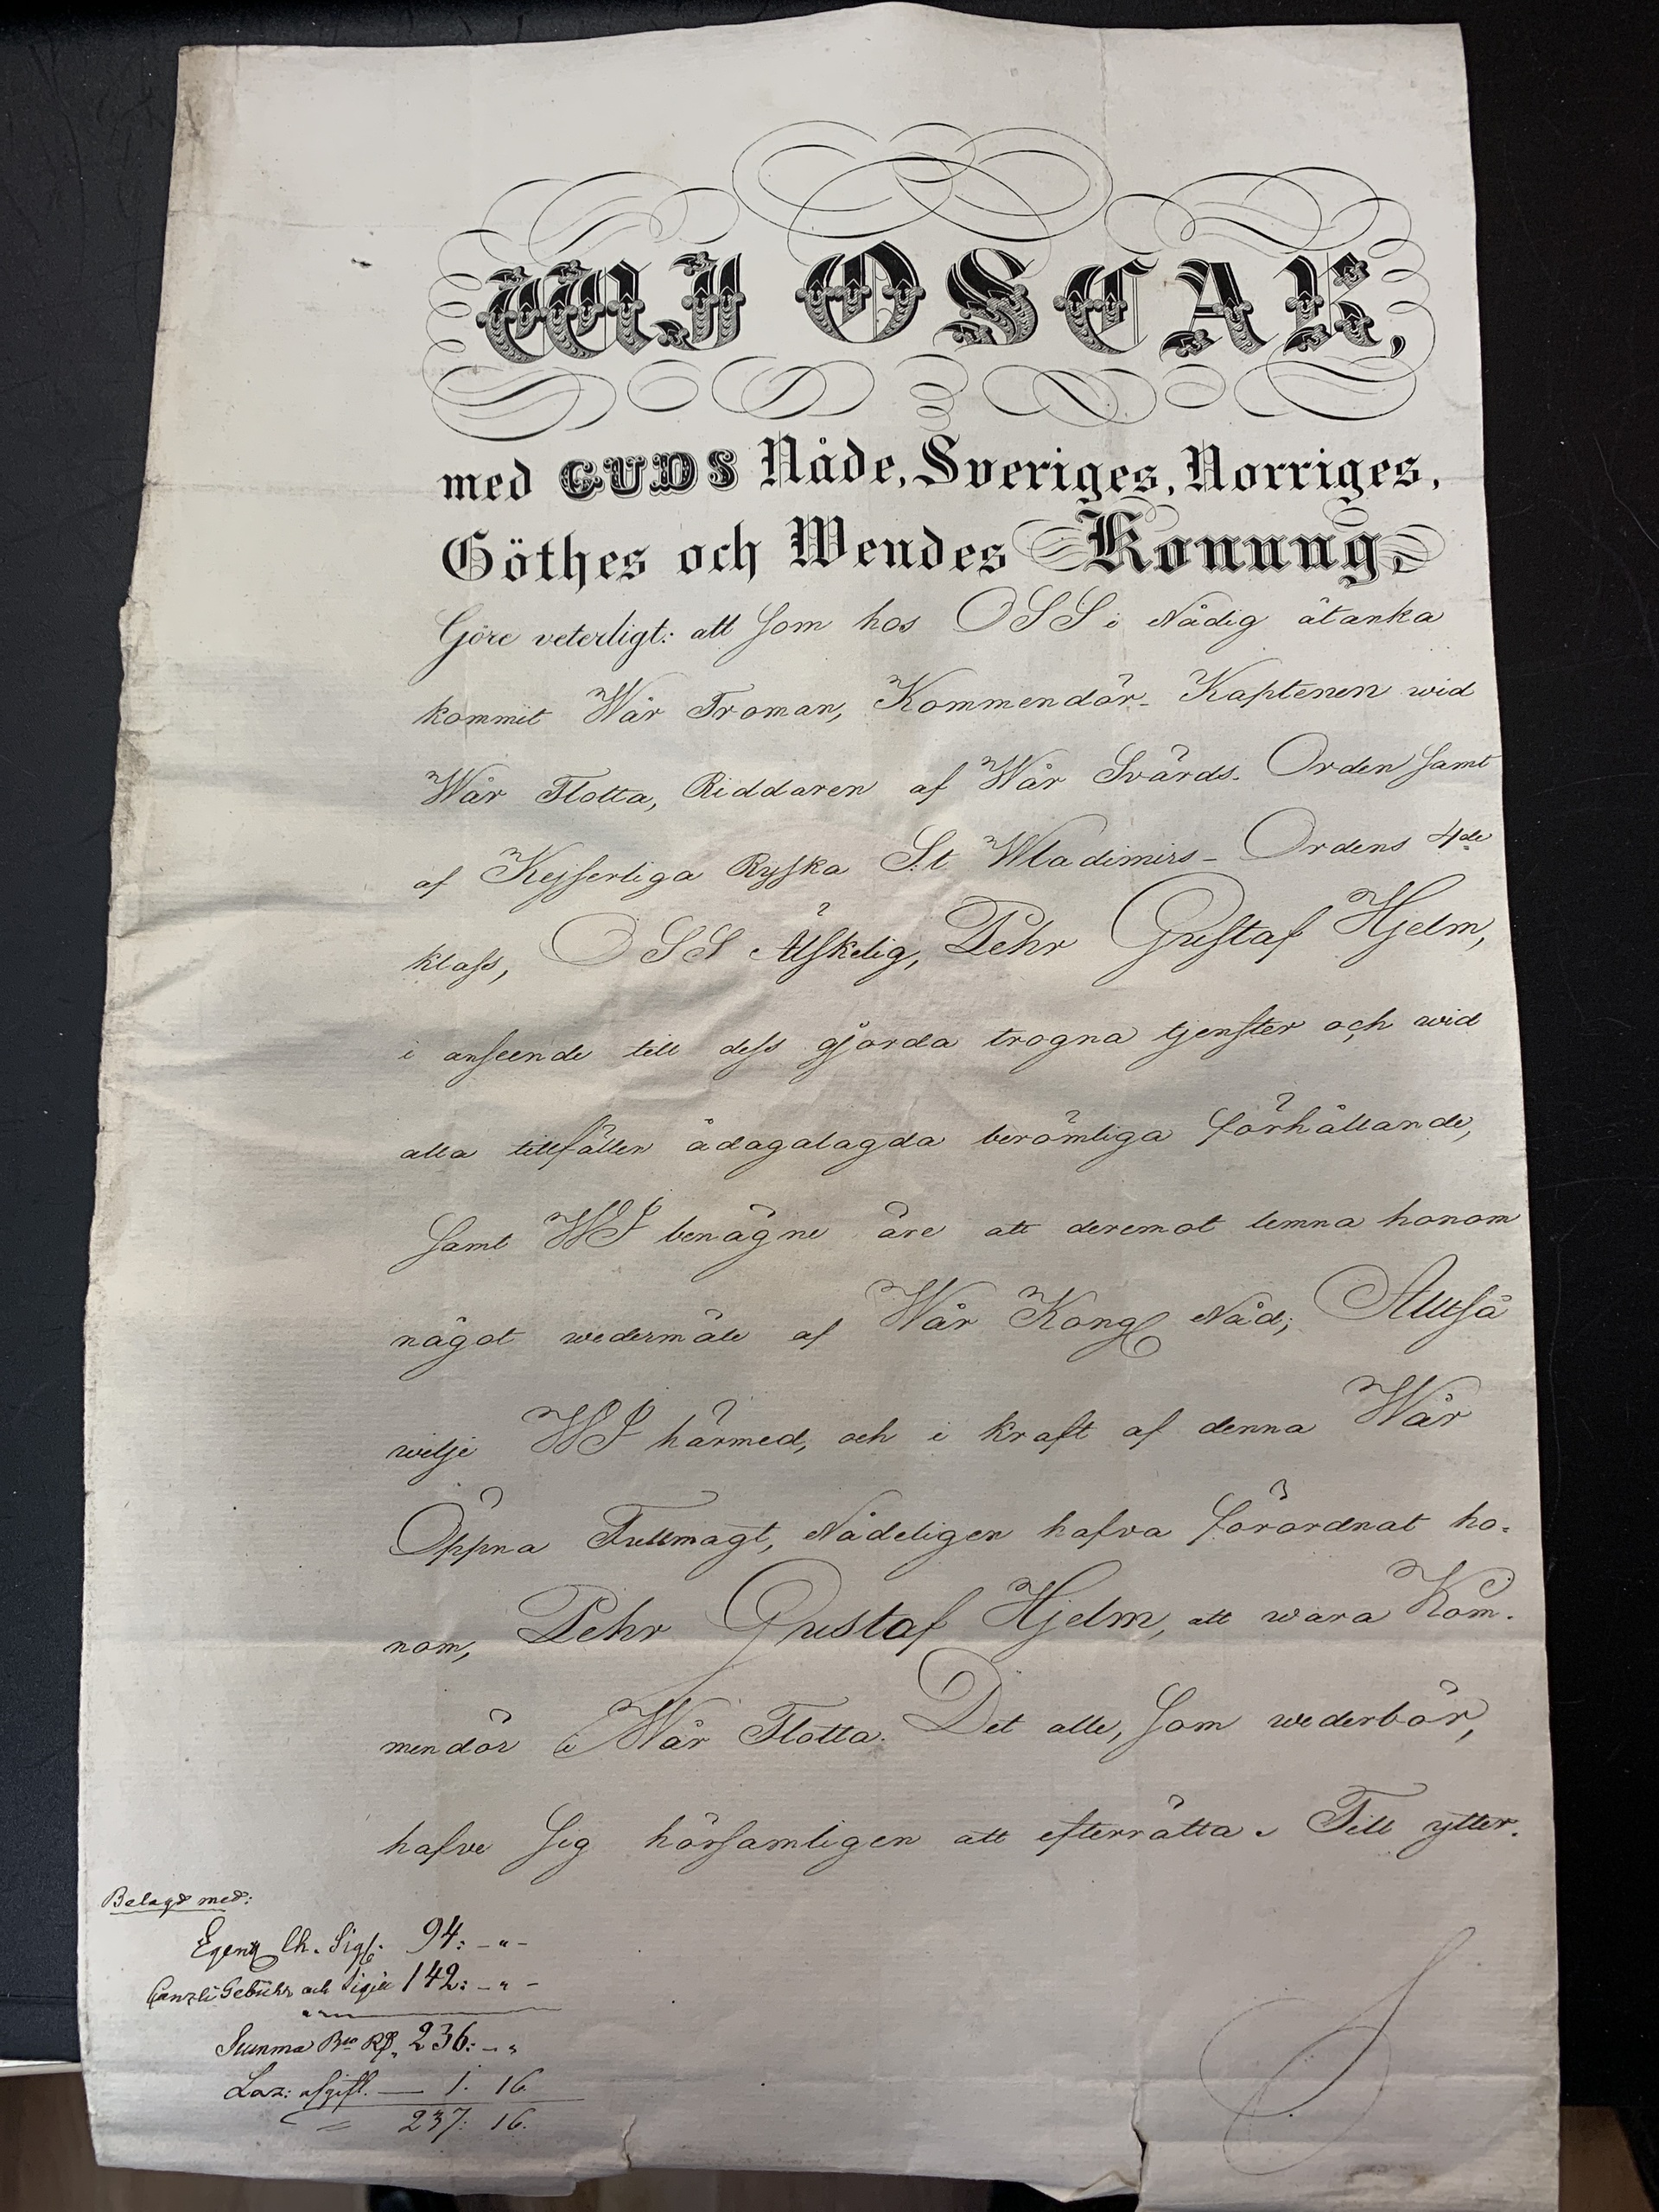 WI OSCAR,
med GUDS Nåde, Sveriges, Norriges,
Göthes och Wendes Konung,
Göre veterligt: att som hos OSS i Nådig åtanka
kommit Wår Troman, Kommendör-Kaptenen wid
Wår Flotta, Riddaren af Wår Svärds-Orden samt
af Kejserliga Ryska S:t Wladimirs-Ordens 4de
klass, OSS Älskelig, Pehr Gustaf Hjelm,
i anseende till dess gjorda trogna tjenster och wid
alla tillfällen ådagalagda berömliga förhållande,
samt WI benägne äre att deremot lemna honom
något wedermäle af Wår Kongl Nåd; Alltså
wilje WI härmed, och i kraft af denna Wår
Öppna Fullmagt, Nådeligen hafva förordnat ho-
nom, Pehr Gustaf Hjelm, att wara Kom-
mendör i Wår Flotta. Det alle, som wederbör,
hafve sig hörsamligen att efterrätta. Till ytter-
Belagd med:
Ch. Sig: 94: - " -
Canzli Gebühr och Sigill 142: - " -
Summa Bco Rd. 236: - "
Laz: afgift. — 1. 16
237: 16.